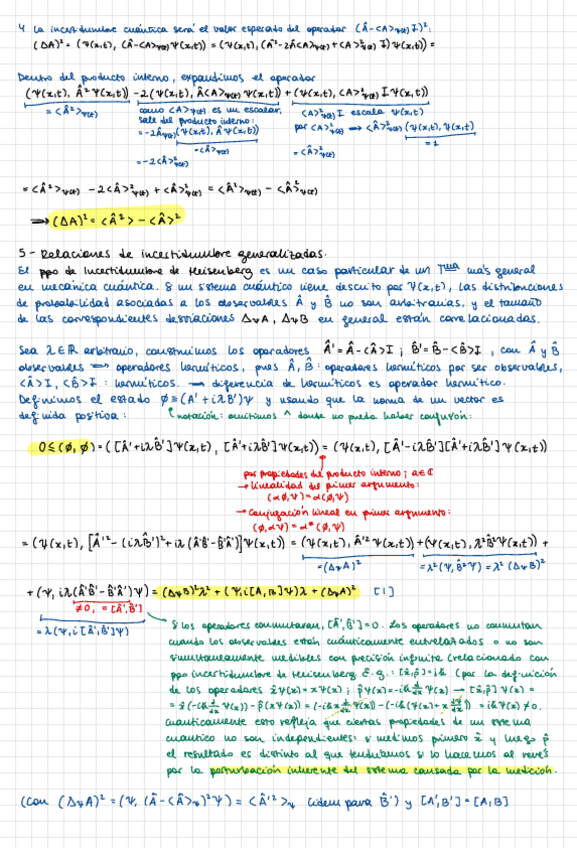 4 La incertidumbre cuántica será el valor esperado del operador (Â-<A>ψ(t) I)²:
(ΔA)² = (Ψ(x,t), (Â-<A>ψ(t))²Ψ(x,t)) = (Ψ(x,t), (Â²-2Â<A>ψ(t)+<A>²ψ(t) I)Ψ(x,t)) =
Dentro del producto interno, expandimos el operador
(Ψ(x,t), Â²Ψ(x,t)) -2(Ψ(x,t), Â<A>ψ(t)Ψ(x,t)) + (Ψ(x,t), <A>²ψ(t) I Ψ(x,t))
= <Â²>ψ(t)
como <A>ψ(t) es un escalar,
sale del producto interno:
<A>²ψ(t) I escala Ψ(x,t)
por <A>²ψ(t) ⟹ <Â>²ψ(t) (Ψ(x,t), Ψ(x,t))
= 1
= <Â>ψ(t)
= -2<Â>²ψ(t)
= <Â>²ψ(t)
= <Â²>ψ(t) - 2<Â>²ψ(t) + <Â>²ψ(t) = <Â²>ψ(t) - <Â>²ψ(t)
⟹ (ΔA)² = <Â²> - <Â>²
5 - Relaciones de incertidumbre generalizadas.
El ppo de Incertidumbre de Heisenberg es un caso particular de un Tma más general
en mecánica cuántica. Si un sistema cuántico viene descrito por Ψ(x,t), las distribuciones
de probabilidad asociadas a los observables Â y B̂ no son arbitrarias, y el tamaño
de las correspondientes desviaciones ΔψA, ΔψB en general están correlacionadas.
Sea λ∈ℝ arbitrario, construimos los operadores Â' = Â-<Â>I ; B̂' = B̂-<B̂>I , con Â y B̂
observables ⟹ operadores hermíticos, pues Â, B̂: operadores hermíticos por ser observables,
<Â>I, <B̂>I : hermíticos. ⟶ diferencia de hermíticos es operador hermítico.
Definimos el estado ∅≡(A'+iλB')Ψ y usando que la norma de un vector es
definida positiva:
notación: omitimos ^ donde no pueda haber confusión:
0≤(∅,∅) = ([Â'+iλB̂']Ψ(x,t), [Â'+iλB̂']Ψ(x,t)) = (Ψ(x,t), [Â'-iλB̂'][Â'+iλB̂']Ψ(x,t))
por propiedades del producto interno; α∈ℂ
→ Linealidad del primer argumento:
(α∅,Ψ) = α(∅,Ψ)
→ Conjugación lineal en primer argumento:
(∅,αΨ) = α*(∅,Ψ)
= (Ψ(x,t), [Â'²-(iλB̂')²+iλ(Â'B̂'-B̂'Â')]Ψ(x,t)) = (Ψ(x,t), Â'²Ψ(x,t)) + (Ψ(x,t), λ²B̂'²Ψ(x,t)) +
= (ΔψA)²
= λ²(Ψ,B̂'²Ψ) = λ²(ΔψB)²
+ (Ψ, iλ(Â'B̂'-B̂'Â')Ψ) = (ΔψB)²λ² + (Ψ,i[A,B]Ψ)λ + (ΔψA)² [1]
≠0, = [Â',B̂']
= λ(Ψ,i[Â',B̂']Ψ)
Si los operadores conmutaran, [Â',B̂']=0. Los operadores no conmutan
cuando los observables están cuánticamente entrelazados o no son
simultáneamente medibles con precisión infinita (relacionado con
ppo incertidumbre de Heisenberg E.g.: [x̂,p̂]=iħ (por la definición
de los operadores x̂Ψ(x)=xΨ(x) ; p̂Ψ(x)=-iħ d/dx Ψ(x) ⟶ [x̂,p̂]Ψ(x) =
= x̂(-iħ d/dx Ψ(x)) - p̂(xΨ(x)) = (-iħx d/dx Ψ(x)) - (-iħ(Ψ(x)+x dΨ/dx)) = iħΨ(x) ≠0.
Cuánticamente esto refleja que ciertas propiedades de un sistema
cuántico no son independientes: si medimos primero x̂ y luego p̂
el resultado es distinto al que tendríamos si lo hacemos al revés
por la perturbación inherente del sistema causada por la medición.
(Con (ΔψA)² = (Ψ, (Â-<Â>ψ)²Ψ) = <Â'²>ψ (ídem para B̂') y [A',B'] = [A,B]